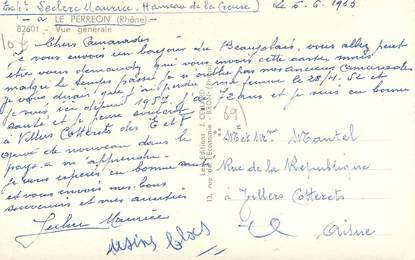 Exp: Leclerc Maurice - Hameau de la Creuse
Le 6-6-1963
- à LE PERREON (Rhône) -
82601 - Vue générale
Chers Camarades
Je vous envoie un bonjour du Beaujolais, vous allez peut
être vous demander qui vous envoie cette carte mais
malgré le temps passé je n'oublie pas mes anciens camarades
je vous dirai que j'ai perdu ma femme le 28/11-52 et
je suis ici depuis 1957 j'ai 72 ans et je suis en bonne
santé et je pense souvent
à Villers Cotterêts des E et F
quoi de nouveau dans le
pays a m'apprendre.
je vous espère en bonne santé
et vous envoie mes bons
souvenirs et mes amitiés
Leclerc Maurice
69
Mr et Mme Mantel
Rue de la République
à Villers Cotterets
Aisne
Les Editions J. CELLARD